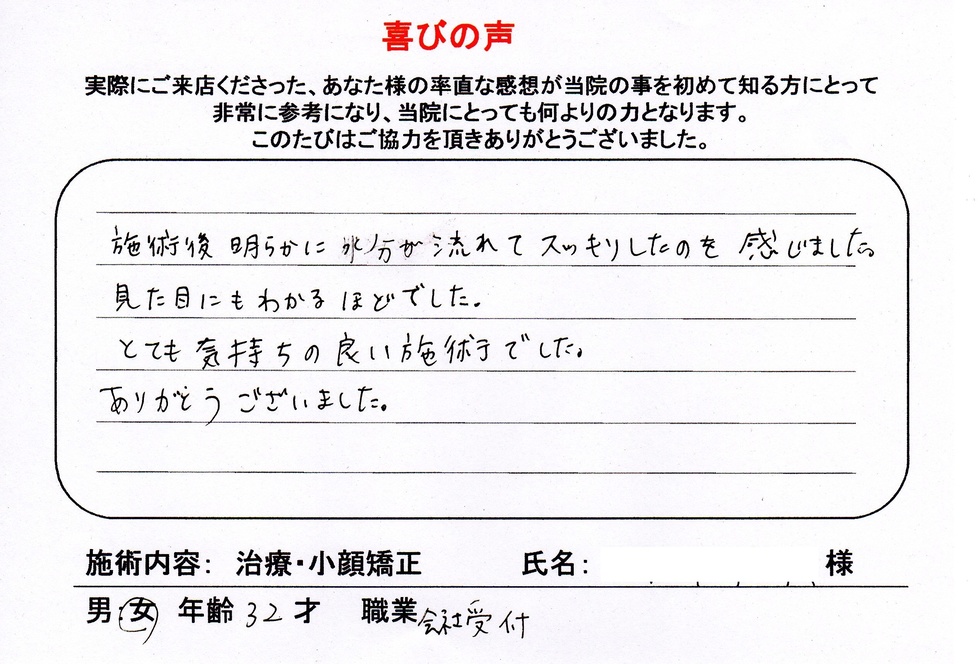 喜びの声
実際にご来店くださった、あなた様の率直な感想が当院の事を初めて知る方にとって
非常に参考になり、当院にとっても何よりの力となります。
このたびはご協力を頂きありがとうございました。
施術後 明らかに 水分が流れて スッキリしたのを 感じました。
見た目にもわかるほどでした。
とても気持ちの良い施術でした。
ありがとうございました。
施術内容： 治療・小顔矯正 氏名： 様
男・女 年齢 32 才 職業 会社受付